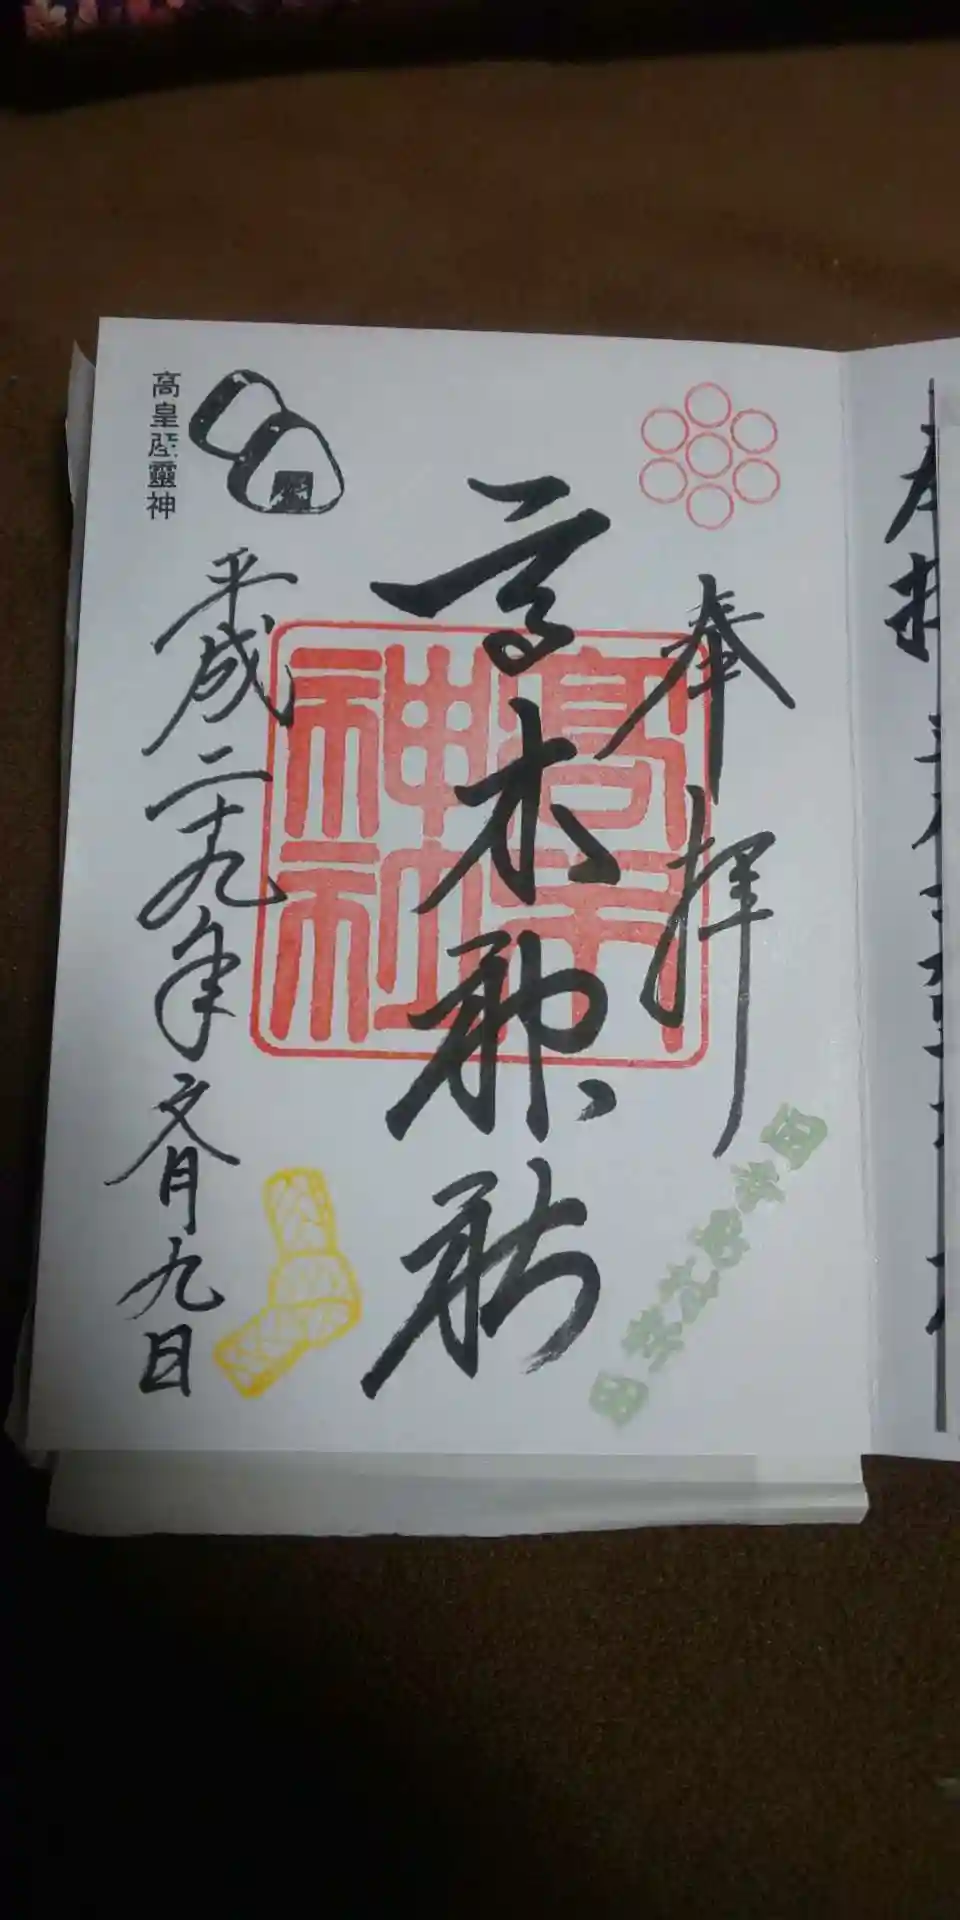 奉拝
高木神社
高木神社
平成二十九年文月九日
高皇産靈神
奉拝